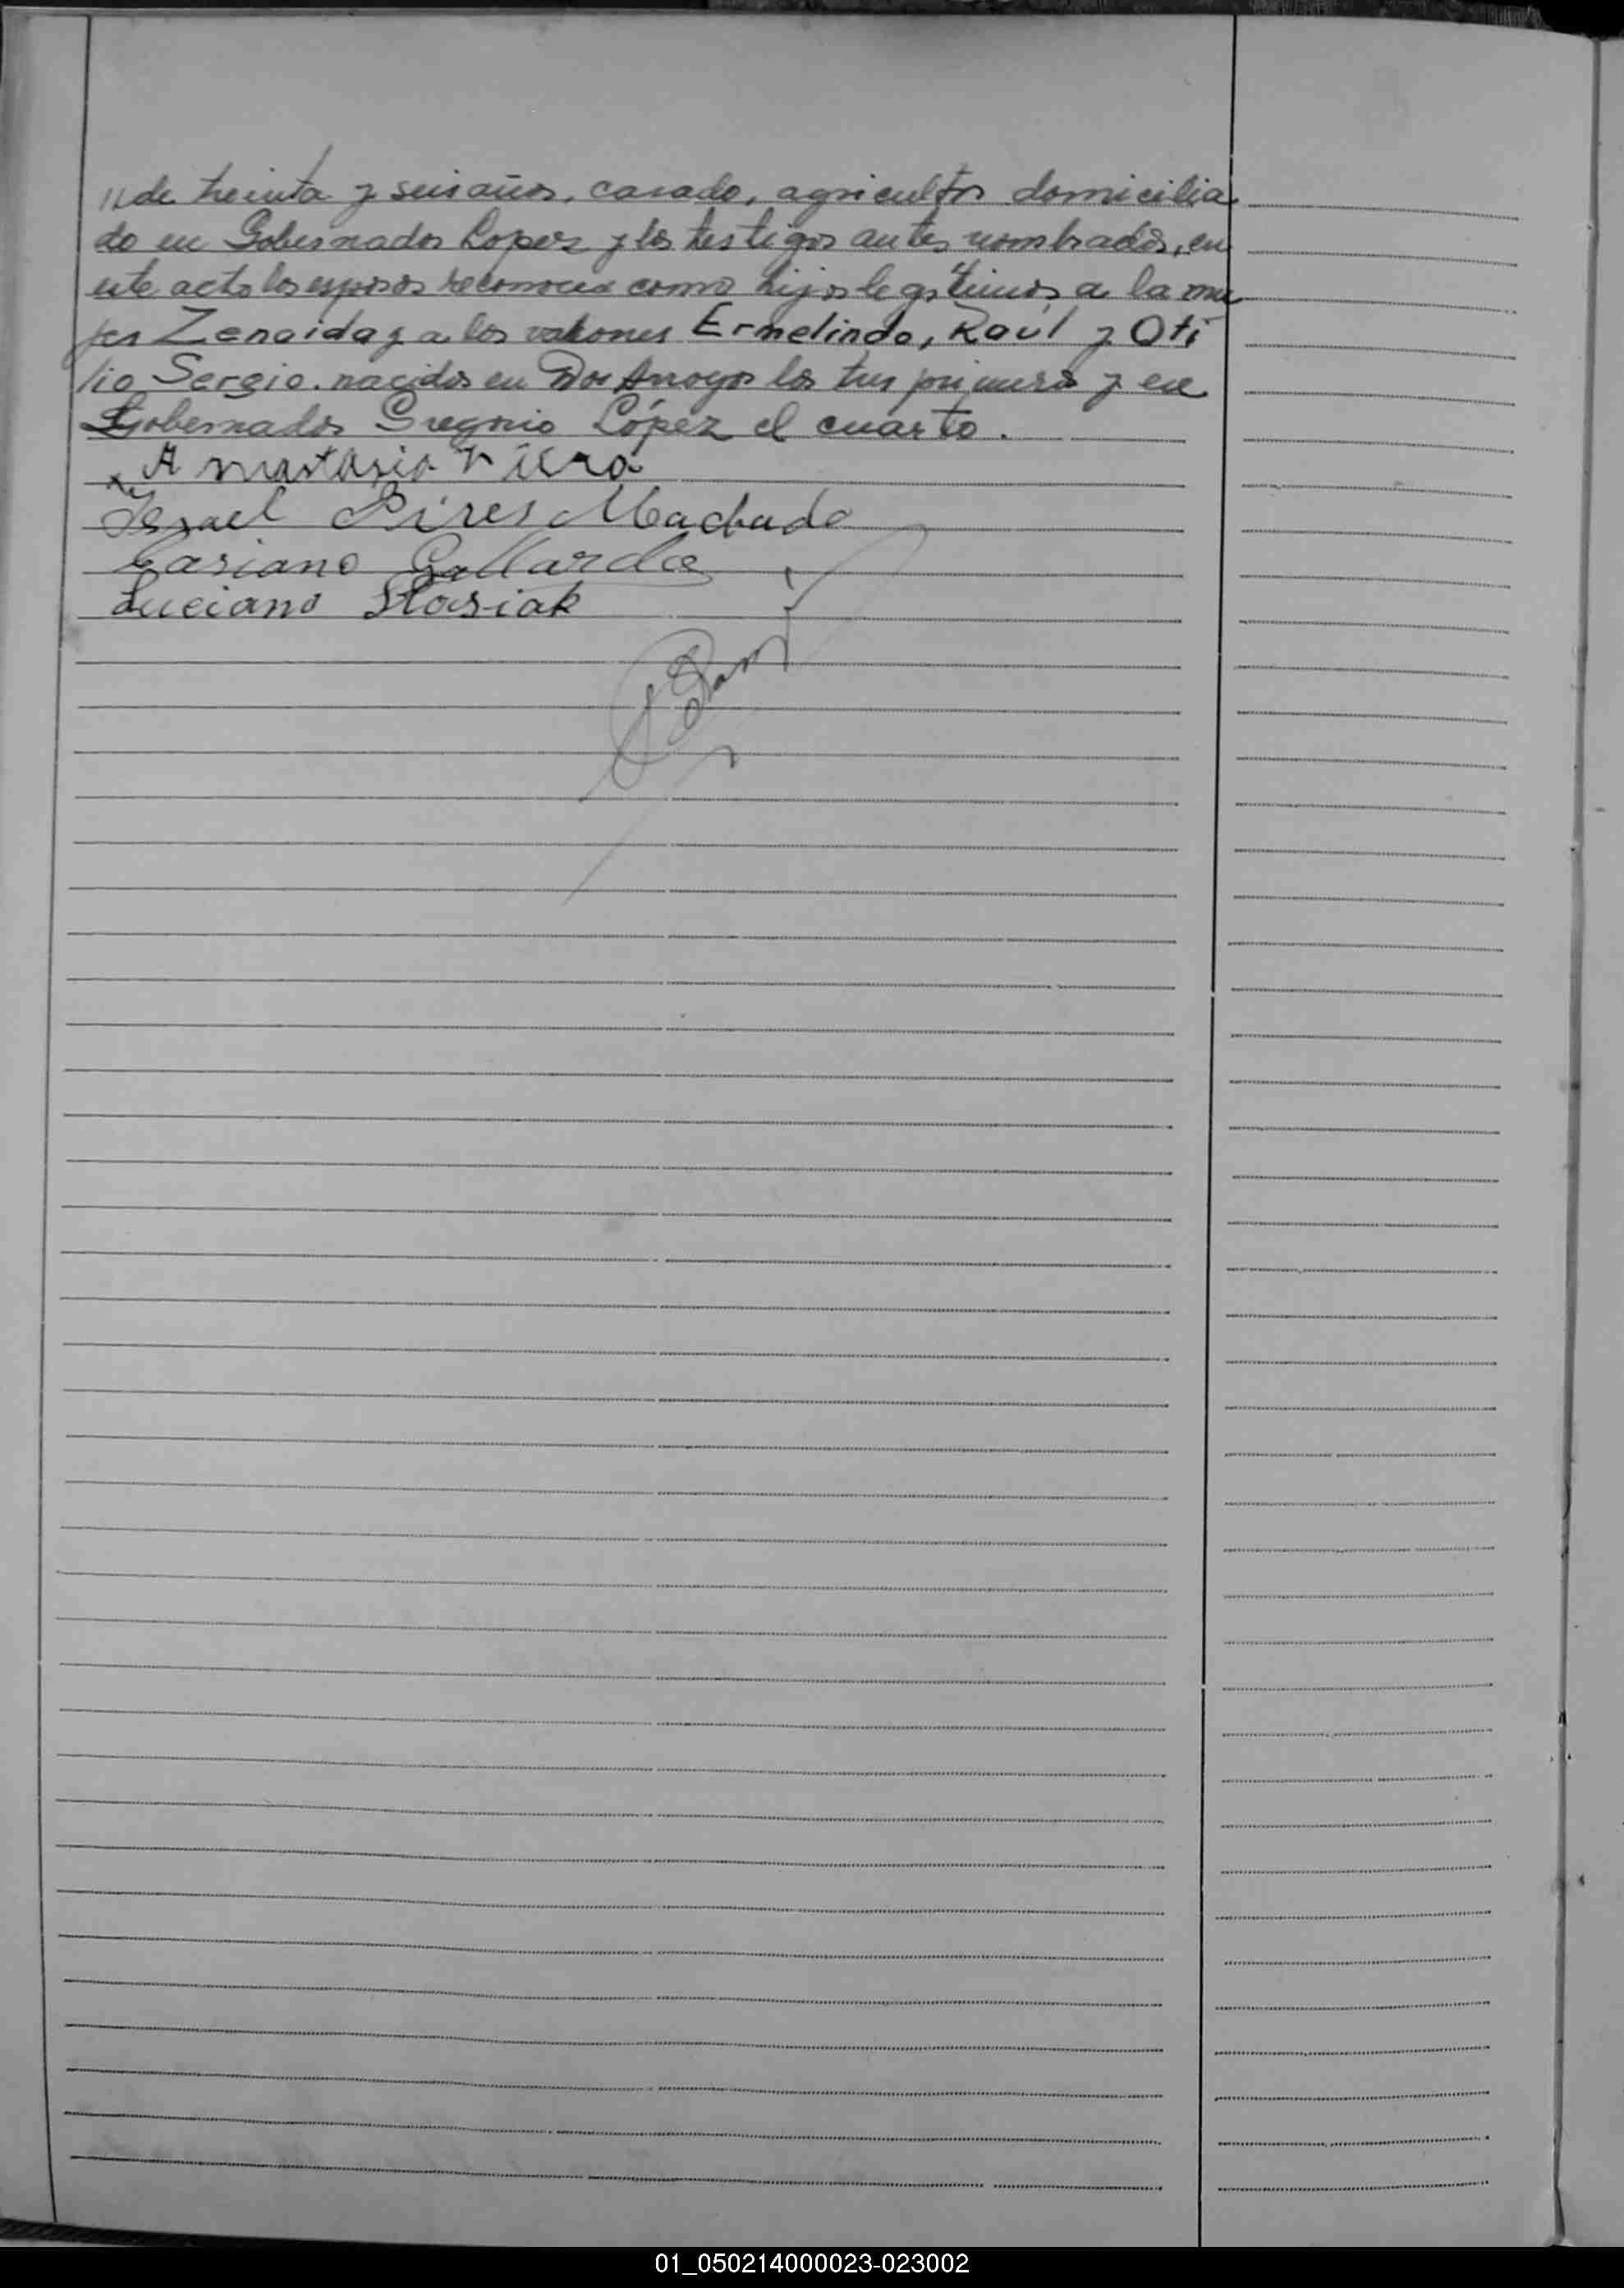 "de treinta y seis años, casado, agricultor domicilia
do en Gobernador Lopez y los testigos antes nombrados, en
este acto los esposos reconocen como hijos legítimos a la mu
jer Zenaida y a los varones Ermelindo, Raúl y Oti
lio Sergio. nacidos en Dos Arroyos los tres primeros y en
Gobernador Gregorio López el cuarto.
Anastasia Viera
Israel Pires Machado
Casiano Gallardo
Luciano Stasiak
01_050214000023-023002